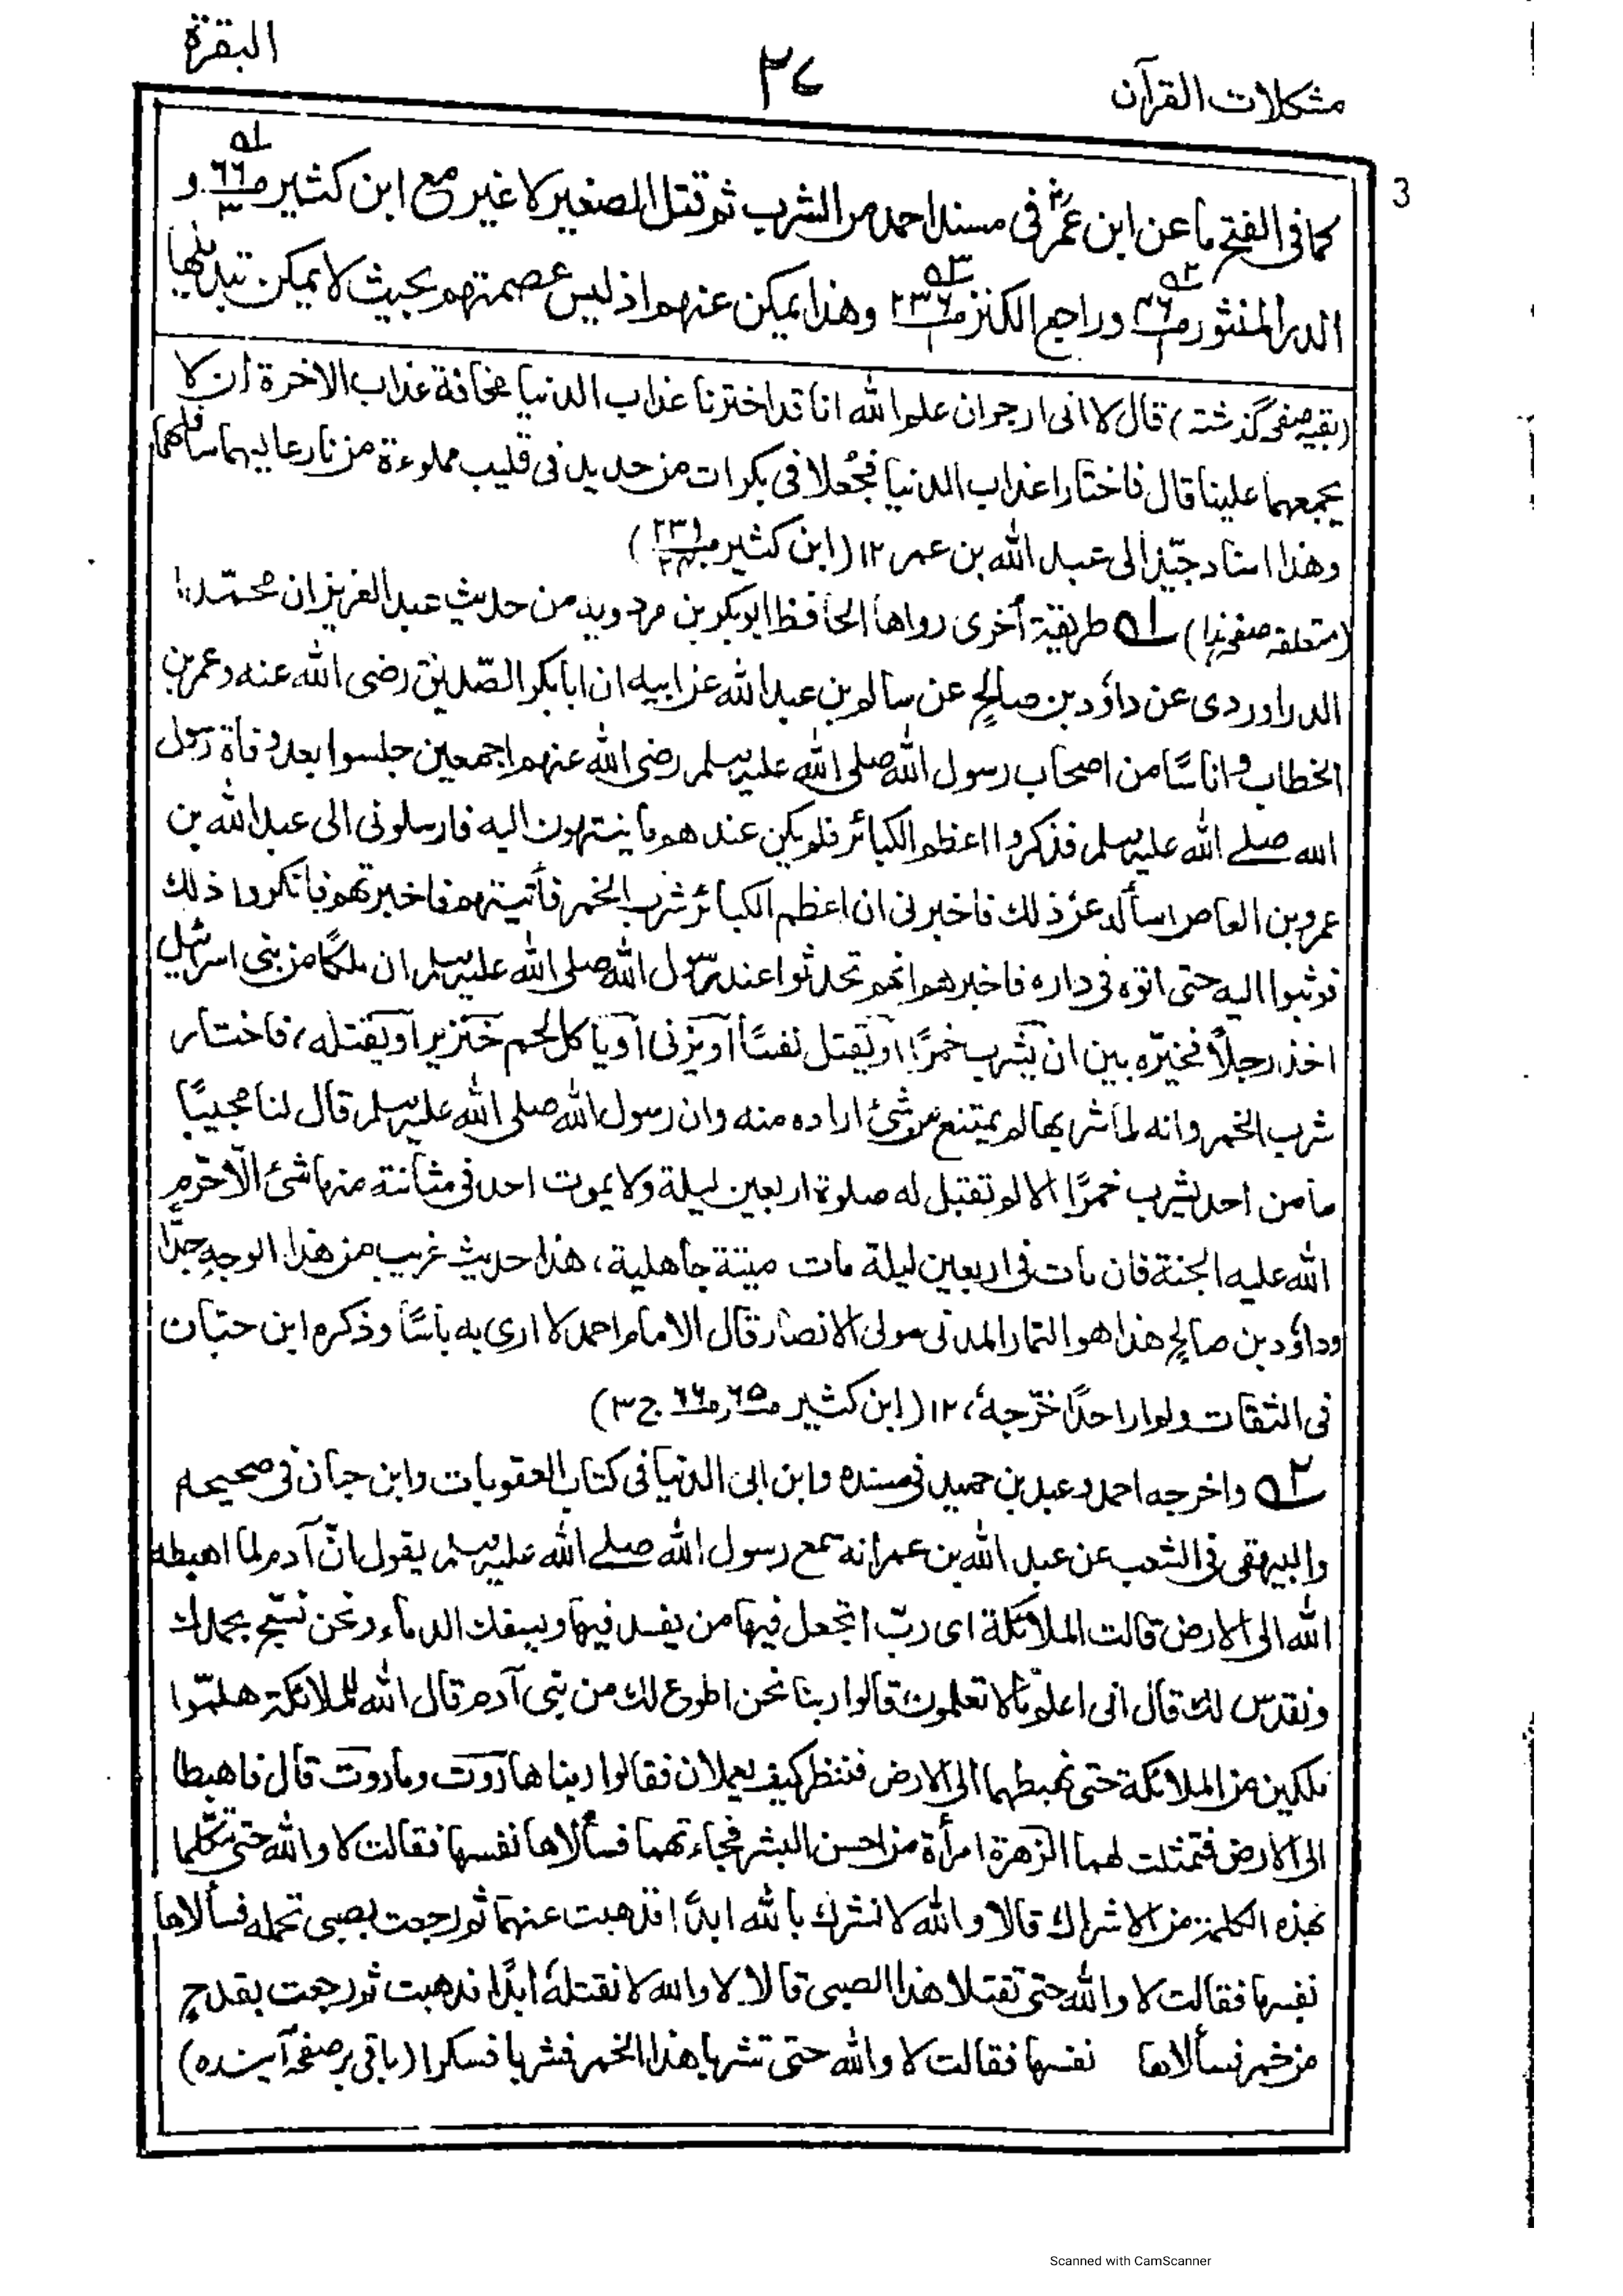 مشكلات القرآن
٣٤
البقرة
3
كما فى الفتح ما عن ابن عمرؓ فى مسند احمد من الشرب ثم قتل الصغير لا غير مع ابن كثير صـ٦٦ ٣ و
الدر المنثور صـ٤٦ ١ وراجع الكنز صـ٢٣٦ ١ وهذا يمكن عنهم اذ ليس عصمتهم بحيث لا يمكن تبديلها
(بقيه صفحۂ گذشته) قال لا انى ارجو ان علم الله انا قد اخترنا عذاب الدنيا مخافة عذاب الاخرة ان لا
يجمعهما علينا قال فاختارا عذاب الدنيا فجُعلا فى بكرات من حديد فى قليب مملوءة من نار عاليهما سافلهما
وهذا اسناد جيّد الى عبد الله بن عمر ١٢ (ابن كثير
(متعلقه صفحۂ هذا) ١ـه طريقة أخرى رواها الحافظ ابوبكر بن مردويه من حديث عبد العزيز ان محمّدا
الدراوردى عن داؤد بن صالح عن سالم بن عبد الله عن ابيه ان ابا بكر الصّديق رضى الله عنه وعمر بن
الخطاب و اناسًا من اصحاب رسول الله صلى الله عليه وسلم رضى الله عنهم اجمعين جلسوا بعد وفاة رسول
الله صلے الله عليه وسلم فذكروا اعظم الكبائر فلم يكن عندهم ما ينتهون اليه فارسلونى الى عبد الله بن
عمرو بن العاص اسأله عن ذلك فاخبرنى ان اعظم الكبائر شرب الخمر فأتيتهم فاخبرتهم فانكروا ذلك
فوثبوا اليه حتى اتوه فى داره فاخبرهم انهم تحدثوا عند رسول الله صلى الله عليه وسلم ان ملكًا من بنى اسرائيل
اخذ رجلاً فخيّره بين ان يشرب خمرًا او يقتل نفسًا أو يزنى أو يأكل لحم خنزير أو يقتله، فاختار
شرب الخمر وانه لما شربها لم يمتنع من شئ اراده منه وان رسول الله صلى الله عليه وسلم قال لنا مجيبًا
ما من احد يشرب خمرًا الا لم تقبل له صلوة اربعين ليلة ولا يموت احد فى مثانته منها شئ الّا حرّم
الله عليه الجنة فان مات فى اربعين ليلة مات ميتة جاهلية، هذا حديث غريب من هذا الوجهِ جدًّا
وداؤد بن صالح هذا هو التمار المدنى مولى الانصار قال الامام احمد لا ارى به بأسًا وذكره ابن حبّان
فى الثقات ولم ار احدًا خرّجه، ١٢ (ابن كثير صـ٦٥، صـ٦٦ ج ٣)
٢ـه واخرجه احمد وعبد بن حميد فى مسنده وابن ابى الدنيا فى كتاب العقوبات وابن حبان فى صحيحه
والبيهقى فى الشعب عن عبد الله بن عمر انه سمع رسول الله صلے الله عليه وسلم يقول انّ آدم لما اهبطه
الله الى الارض قالت الملائكة اى ربّ اتجعل فيها من يفسد فيها ويسفك الدماء ونحن نسبّح بحمدك
ونقدس لك قال انى اعلم ما لا تعلمون قالوا ربنا نحن اطوع لك من بنى آدم قال الله للملائكة هلمّوا
ملكين من الملائكة حتى نهبطهما الى الارض فننظر كيف يعملان فقالوا ربنا هاروت وماروت قال فاهبطا
الى الارض فتمثلت لهما الزهرة امرأة من احسن البشر فجاءتهما فسألاها نفسها فقالت لا والله حتى تتكلما
بهذه الكلمة من الاشراك قالا والله لا نشرك بالله ابدًا فذهبت عنهما ثم رجعت بصبى تحمله فسألاها
نفسها فقالت لا والله حتى تقتلا هذا الصبى قالا لا والله لا نقتلهٗ ابدًا فذهبت ثم رجعت بقدحٍ
من خمر فسألاها نفسها فقالت لا والله حتى تشربا هذا الخمر فشربا فسكرا (باقى بر صفحۂ آينده)
Scanned with CamScanner